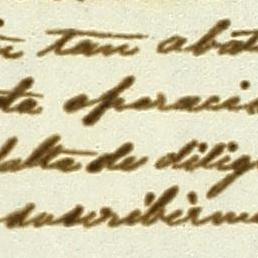 tan abat
ta operació
falta de dilig
suscribirme